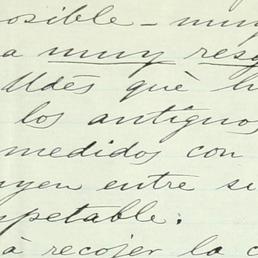 osible - muy
a muy resp
Udes què h
los antiguos
medidos con
yen entre si
spetable.
à recojer la c